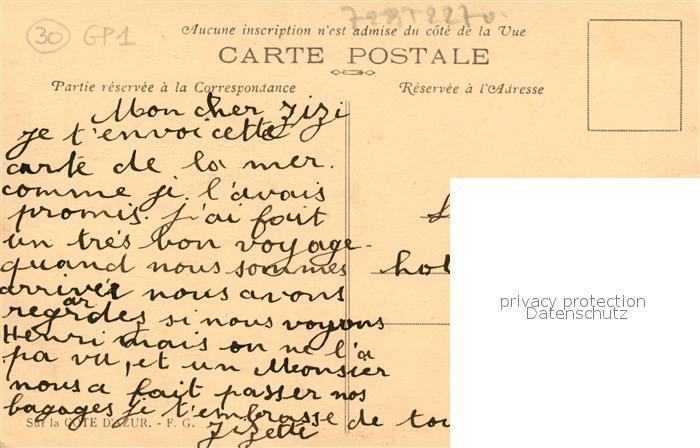 30 GP1
Aucune inscription n'est admise du côté de la Vue
CARTE POSTALE
Partie réservée à la Correspondance
Réservée à l'Adresse
Mon cher Zizi
je t'envoi cette
carte de la mer.
comme je l'avais
promis. j'ai fait
un très bon voyage.
quand nous sommes
hot
arrivér nous avons
regardes si nous voyons
Henri mais on ne l'a
pa vu, et un Monsier
nous a fait passer nos
bagages je t'embrasse de tou
Zizette
Sur la COTE D'AZUR. - F. G.
privacy protection
Datenschutz